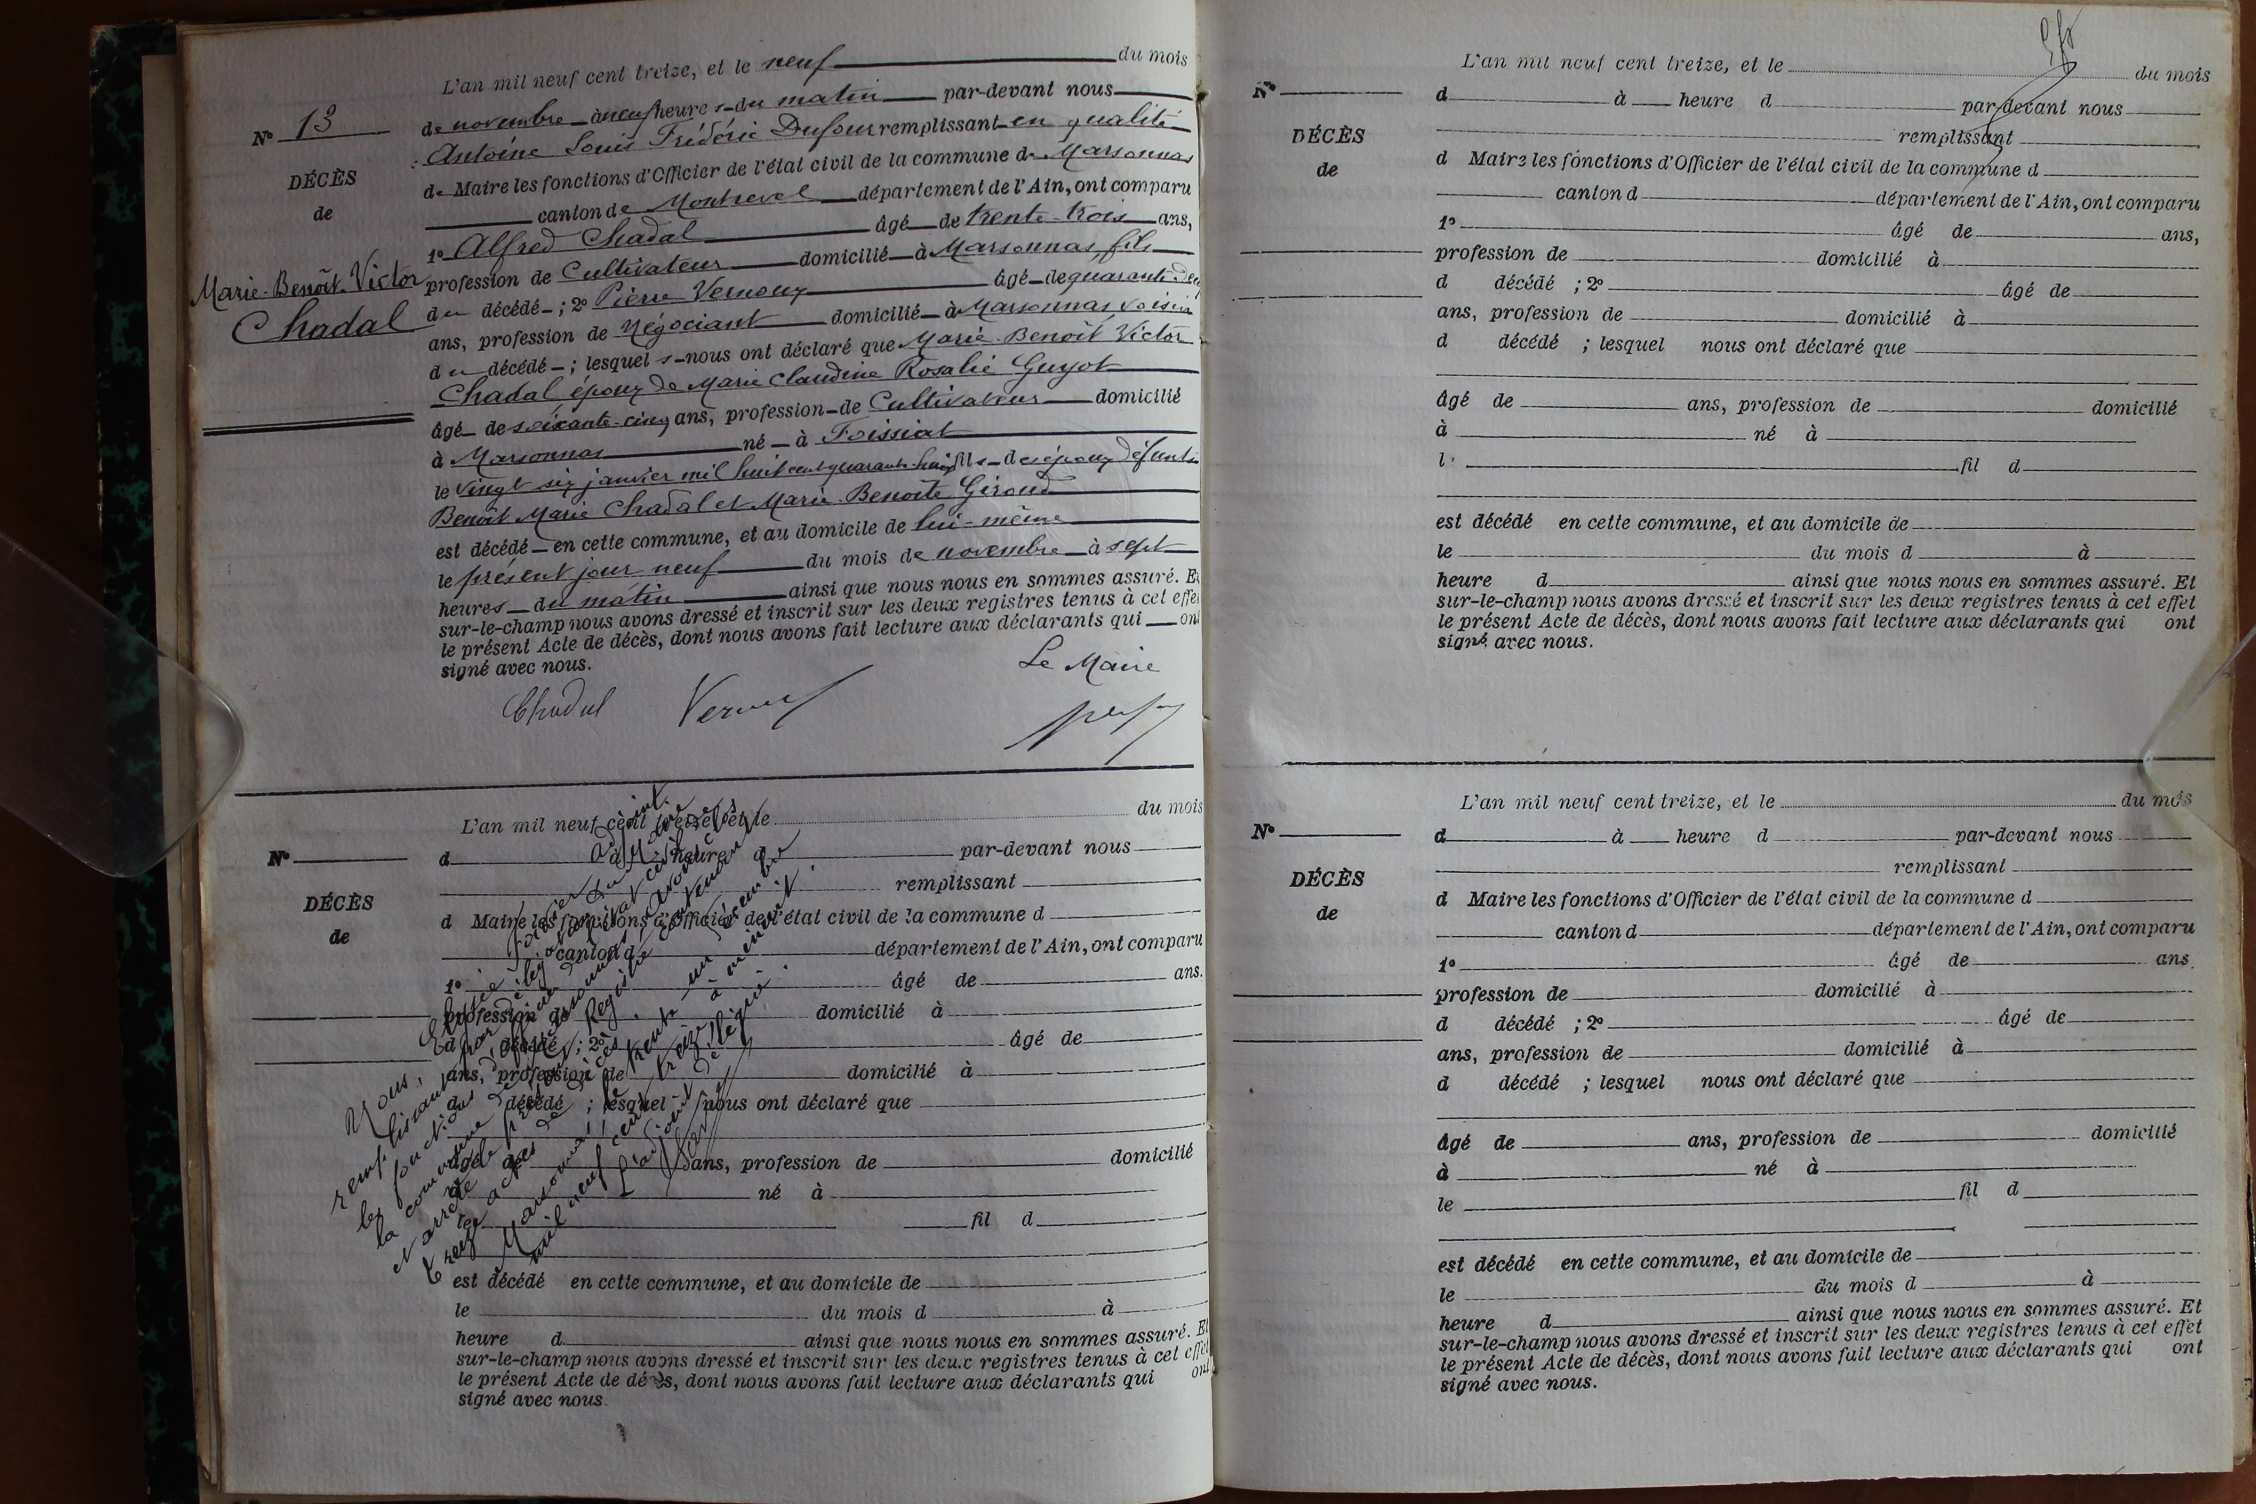 L'an mil neuf cent treize, et le neuf du mois
N° 13
de novembre à neuf heures du matin par-devant nous
Antoine Louis Frédéric Dufour remplissant en qualité
DÉCÈS
de Maire les fonctions d'Officier de l'état civil de la commune de Marsonnas
de
canton de Montrevel département de l'Ain, ont comparu
1° Alfred Chadal âgé de trente-trois ans,
Marie-Benoît-Victor
Chadal
profession de Cultivateur domicilié à Marsonnas, fils
du décédé ; 2° Pierre Vernoux âgé de quarante-deux
ans, profession de Négociant domicilié à Marsonnas voisin
du décédé ; lesquels nous ont déclaré que Marie-Benoît Victor
Chadal époux de Marie Claudine Rosalie Guyot
âgé de soixante-cinq ans, profession de Cultivateur domicilié
à Marsonnas né à Foissiat
le vingt six janvier mil huit cent quarante-huit fils des époux défunts
Benoît Marie Chadal et Marie-Benoite Giroud
est décédé en cette commune, et au domicile de lui-même
le présent jour neuf du mois de novembre à sept
heures du matin ainsi que nous nous en sommes assuré. Et
sur-le-champ nous avons dressé et inscrit sur les deux registres tenus à cet effet
le présent Acte de décès, dont nous avons fait lecture aux déclarants qui ont
signé avec nous.
Le Maire
Chadal
L'an mil neuf cent treize, et le du mois
N°
d à heure d par-devant nous
remplissant
DÉCÈS
d Maire les fonctions d'Officier de l'état civil de la commune d
de
canton d département de l'Ain, ont comparu
1° âgé de ans.
profession de domicilié à
d décédé ; 2° âgé de
ans, profession de domicilié à
d décédé ; lesquel nous ont déclaré que
âgé de ans, profession de domicilié
à né à
le fil d
est décédé en cette commune, et au domicile de
le du mois d à
heure d ainsi que nous nous en sommes assuré. Et
sur-le-champ nous avons dressé et inscrit sur les deux registres tenus à cet effet
le présent Acte de décès, dont nous avons fait lecture aux déclarants qui ont
signé avec nous.
Nous, adjoint
remplissant par délégation du Maire
les fonctions d'officier de l'état civil de
la commune de Marsonnas, avons clos
et arrêté le présent Registre contenant
treize actes de décès.
Marsonnas, le trente-un décembre
mil neuf cent treize, à minuit.
L'adjoint délégué.
L'an mil neuf cent treize, et le du mois
N°
d à heure d par-devant nous
DÉCÈS
remplissant
d Maire les fonctions d'Officier de l'état civil de la commune d
de
canton d département de l'Ain, ont comparu
1° âgé de ans,
profession de domicilié à
d décédé ; 2° âgé de
ans, profession de domicilié à
d décédé ; lesquel nous ont déclaré que
âgé de ans, profession de domicilié
à né à
l fil d
est décédé en cette commune, et au domicile de
le du mois d à
heure d ainsi que nous nous en sommes assuré. Et
sur-le-champ nous avons dressé et inscrit sur les deux registres tenus à cet effet
le présent Acte de décès, dont nous avons fait lecture aux déclarants qui ont
signé avec nous.
L'an mil neuf cent treize, et le du mois
N°
d à heure d par-devant nous
remplissant
DÉCÈS
d Maire les fonctions d'Officier de l'état civil de la commune d
de
canton d département de l'Ain, ont comparu
1° âgé de ans,
profession de domicilié à
d décédé ; 2° âgé de
ans, profession de domicilié à
d décédé ; lesquel nous ont déclaré que
âgé de ans, profession de domicilié
à né à
le fil d
est décédé en cette commune, et au domicile de
le du mois d à
heure d ainsi que nous nous en sommes assuré. Et
sur-le-champ nous avons dressé et inscrit sur les deux registres tenus à cet effet
le présent Acte de décès, dont nous avons fait lecture aux déclarants qui ont
signé avec nous.